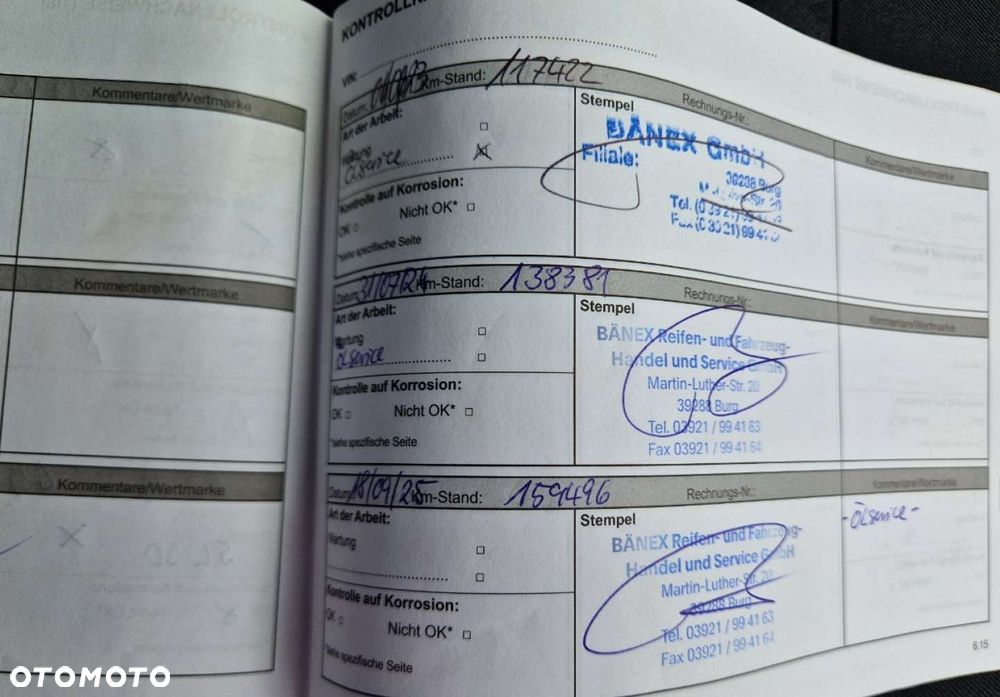 Kommentare/Wertmarke
Kommentare/Wertmarke
Kommentare/Wertmarke
VIN:
Datum: Km-Stand: 117422
Rechnungs-Nr.:
Art der Arbeit:
Wartung
Ölservice
Kontrolle auf Korrosion:
OK Nicht OK*
*siehe spezifische Seite
Stempel
BÄNEX GmbH
Filiale:
Kommentare/Wertmarke
Datum: 31/07/24 Km-Stand: 138381
Rechnungs-Nr.:
Art der Arbeit:
Wartung
Ölservice
Kontrolle auf Korrosion:
OK Nicht OK*
*siehe spezifische Seite
Stempel
BÄNEX Reifen- und Fahrzeug-
Handel und Service GmbH
Martin-Luther-Str. 20
39288 Burg
Tel. 03921 / 99 41 63
Fax 03921 / 99 41 64
Kommentare/Wertmarke
Datum: 18/09/25 Km-Stand: 159496
Rechnungs-Nr.:
Art der Arbeit:
Wartung
Kontrolle auf Korrosion:
OK Nicht OK*
*siehe spezifische Seite
Stempel
BÄNEX Reifen- und Fahrzeug-
Handel und Service GmbH
Martin-Luther-Str. 20
39288 Burg
Tel. 03921 / 99 41 63
Fax 03921 / 99 41 64
Kommentare/Wertmarke
-Ölservice-
6.15
OTOMOTO